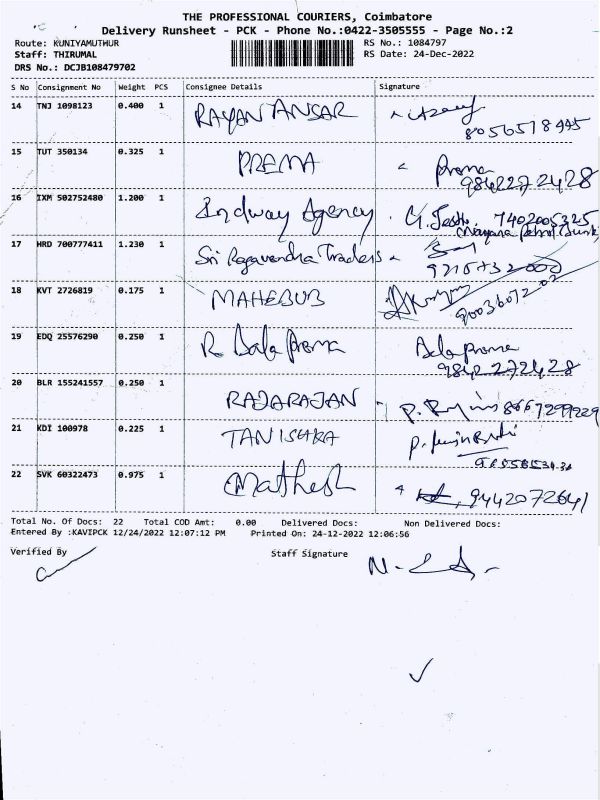 THE PROFESSIONAL COURIERS, Coimbatore
Delivery Runsheet - PCK - Phone No.:0422-3505555 - Page No.:2
Route: KUNIYAMUTHUR RS No.: 1084797
Staff: THIRUMAL RS Date: 24-Dec-2022
DRS No.: DCJB108479702
S No Consignment No Weight PCS Consignee Details Signature
14 TNJ 1098123 0.400 1 RAYAN ANSAR
8056518445
15 TUT 350134 0.325 1 PREMA Prema
9842272428
16 IXM 502752480 1.200 1 Indway Agency 7402005325
17 HRD 700777411 1.230 1 Sri Ragavendra Traders
18 KVT 2726819 0.175 1 MAHEBUB
19 EDQ 25576290 0.250 1 R Bala Prema Balaprema
9842272428
20 BLR 155241557 0.250 1 RAJARAJAN 8667299229
21 KDI 100978 0.225 1 TANISHKA
22 SVK 60322473 0.975 1 Mathesh 9442072641
Total No. Of Docs: 22 Total COD Amt: 0.00 Delivered Docs: Non Delivered Docs:
Entered By :KAVIPCK 12/24/2022 12:07:12 PM Printed On: 24-12-2022 12:06:56
Verified By Staff Signature